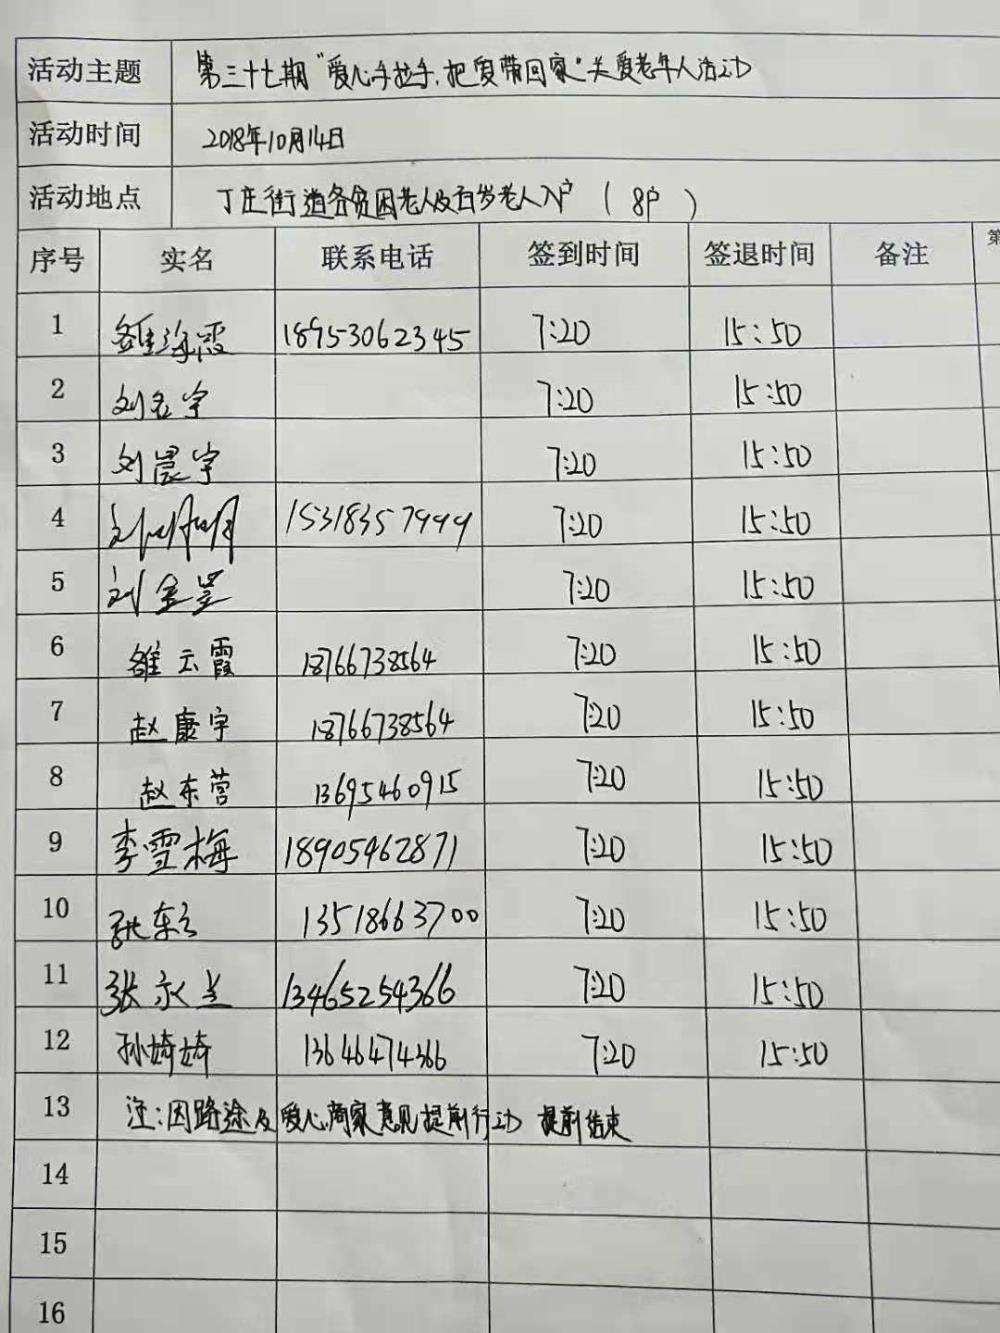 活动主题 第三十七期“爱心手拉手,把爱带回家”关爱老年人活动
活动时间 2018年10月14日
活动地点 丁庄街道各贫困老人及百岁老人入户 ( 8户 )
序号 实名 联系电话 签到时间 签退时间 备注 第
1 雒海霞 18953062345 7:20 15:50
2 刘名宇 7:20 15:50
3 刘晨宇 7:20 15:50
4 15318357999 7:20 15:50
5 刘金 7:20 15:50
6 雒云霞 18766738564 7:20 15:50
7 赵康宇 18766738564 7:20 15:50
8 赵东营 13695460915 7:20 15:50
9 李雪梅 18905462871 7:20 15:50
10 张东 13518663700 7:20 15:50
11 张永兰 13465254366 7:20 15:50
12 孙婍婍 13646474366 7:20 15:50
13 注:因路途及爱心商家意见提前行动 提前结束
14
15
16